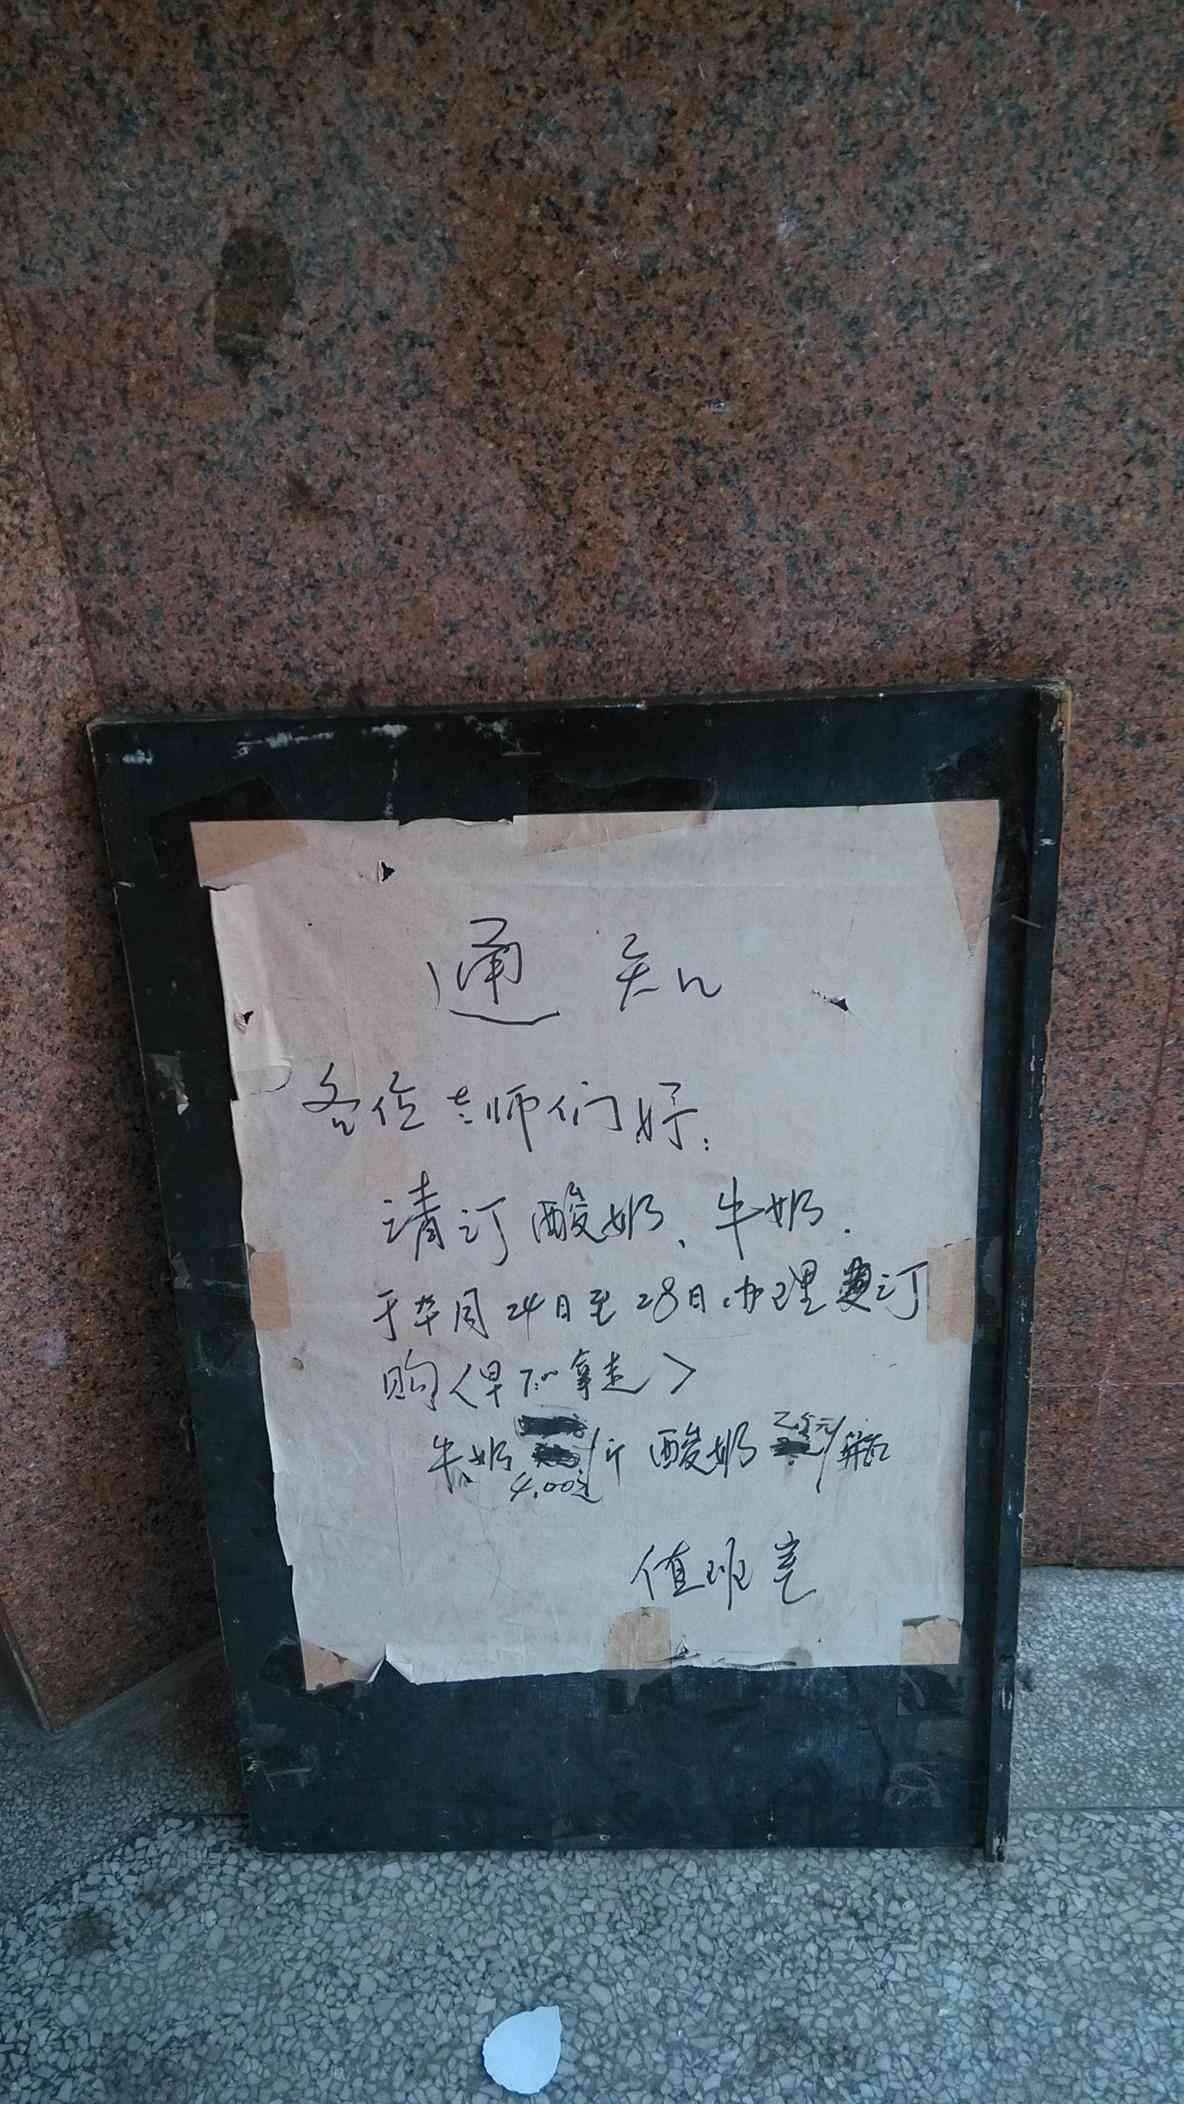 通知
各位老师们好:
请订酸奶、牛奶.
于本月24日至28日办理订
购〈早下拿走〉
牛奶4.00元/斤 酸奶2.5元/瓶
值班室